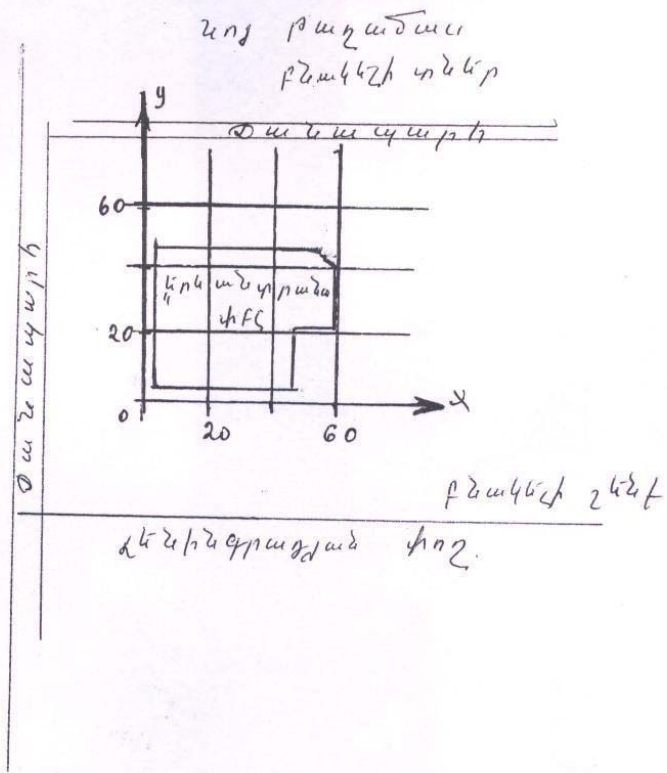 Նոր թաղամաս
բնակելի տներ
y
Ճանապարհ
60
Ճանապարհ
"Երևանտրանս
ՓԲԸ
20
0
20
60
x
բնակելի շենք
Լենինգրադյան փող.